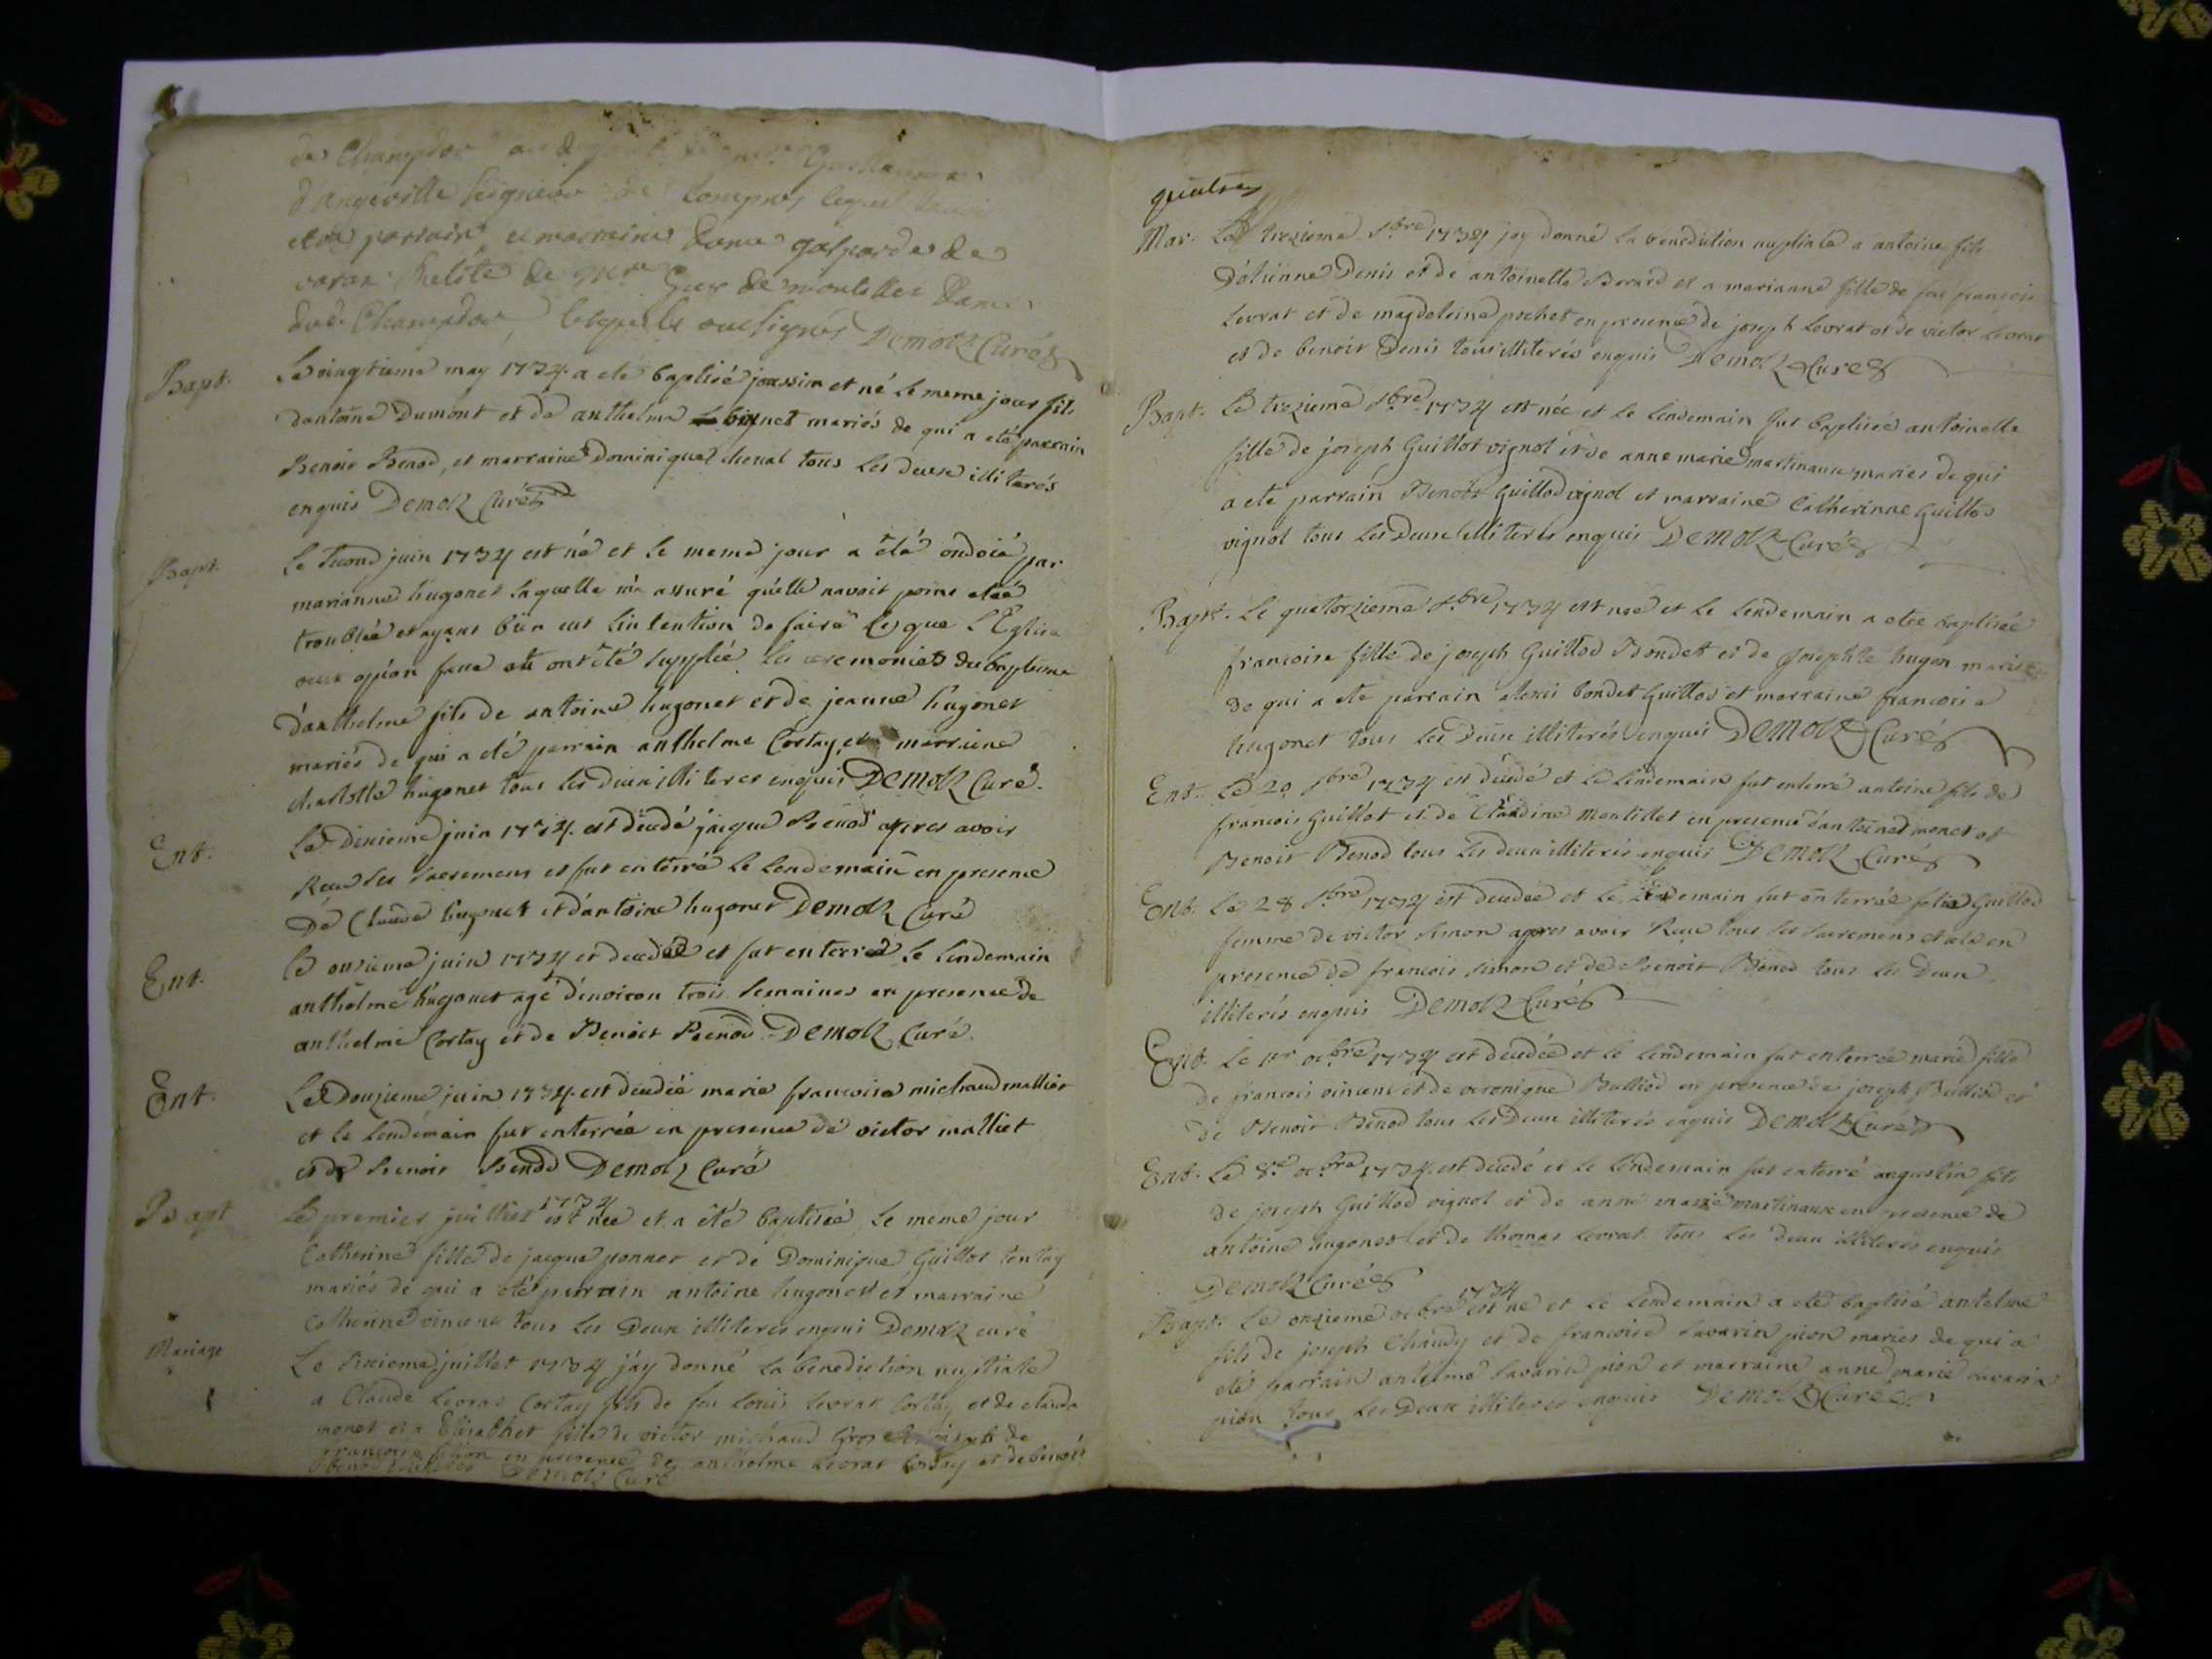 de Champdor
d'angeville seigneur de lompnes lequel
parrain, et marraine dame gasparde de
de Mre Guy de montillet dame
dud. Champdor, lesquels ont signés Demolz Curé
Bapt. Le vingtieme may 1734 a eté baptisé joassim et né le meme jour fils
dantoine Dumont et de anthelma binet mariés de qui a eté parrain
Benoit Benod, et marraine Dominique chenal tous les deux illiterés
enquis Demolz Curé
Bapt. Le second juin 1734 est né et le meme jour a été ondoié par
marianne hugonet laquelle m'a assuré quelle navoit point eteé
troublée et ayant bien eut lintention de faire ce que l'Eglise
veut qu'on fasse ont été supplée les ceremonies du bapteme
d'anthelme fils de antoine hugonet et de jeanne hugonet
mariés de qui a eté parrain anthelme Cortay et marraine
charlotte hugonet tous les deux illiteres enquis Demolz Curé.
Ent. Le dixieme juin 1734 est décédé jacque Benod apres avoir
Receu les sacremens et fut enterré le lendemain en presence
De Claude hugonet et d'antoine hugonet Demolz Curé
Ent. Le onzieme juin 1734 et decedé et fut enterré le lendemain
anthelme hugonet agé d'environ trois semaines en presence de
anthelme Cortay et de Benoit Benod Demolz Curé.
Ent. Le Douzieme juin 1734 est décédée marie francoise michaud malliet
et le lendemain fut enterrée en presence de victor malliet
et de Benoit Benod Demolz Curé
Bapt Le premier juilliet 1734 est née et a été baptisée le meme jour
Catherine fille de jacque ponnet et de Dominique Guillot tentay
mariés de qui a eté parrain antoine hugonet et marraine
Catherine vincent tous les Deux illiteres enquis Demolz curé
Mariage Le sixieme juillet 1734 j'ay donné la benediction nuptialle
a Claude Levrat Cortay fils de feu Louis Levrat Cortay et de clauda
monet et a Elisabhet fille de victor michaud Gros et de
francoise en presence de anthelme Levrat Cortay et de benoit
Demolz Curé
quatre
Mar. Le trezieme 7bre 1734 jay donné la benediction nuptiale a antoine fils
D'étienne Denis et de antoinette Berard et a marianne fille de feu francois
Levrat et de magdeleine pochet en presence de joseph Levrat et de victor Levrat
et de benoit Denis tous illiterés enquis Demolz Curé
Bapt. Le trezieme 7bre 1734 est née et le lendemain fut baptisée antoinette
fille de joseph Guillot vignol et de anne marie martinaux mariés de qui
a eté parrain Benoit Guillod vignol et marraine Catherinne Guillod
vignol tous les deux illiterés enquis Demolz Curé
Bapt. Le quatorzieme 7bre 1734 est née et le lendemain a etée baptisée
francoise fille de joseph Guillod Bondet et de josephte hugon mariés
de qui a eté parrain alexis bondet Guillod et marraine francoise
hugonet tous les deux illiterés enquis Demolz Curé
Ent. Le 20 7bre 1734 est décédé et le lendemain fut enterré antoine fils de
francois Guillot et de Claudine Montillet en presence d'antoine monet et
Benoit Benod tous les deux illiterés enquis Demolz Curé
Ent. Le 28 7bre 1734 est decedée et le lendemain fut enterrée Guillod
femme de victor simon apres avoir Receu tous les sacremens et cela en
presence de francois simon et de Benoit Benod tous les Deux
illiterés enquis Demolz Curé
Ent. Le 1er octbre 1734 est decedée et le lendemain fut enterrée marie fille
de francois vincent et de veronique Balliod en presence de joseph Balliod et
de Benoit Benod tous les Deux illiterés enquis Demolz Curé
Ent. Le 8e octbre 1734 est decedé et le lendemain fut enterré augustin fils
de joseph Guillod vignol et de anne marie martinaux en presence de
antoine hugonet et de thomas Levrat tous les deux illiterés enquis
Demolz Curé
Bapt. Le onzieme octbre 1734 est né et le lendemain a eté baptisé antelme
fils de joseph Chaudy et de francoise Savarin pion mariés de qui a
eté parrain antelme Savarin pion et marraine anne marie savarin
pion tous les Deux illiterés enquis Demolz Curé